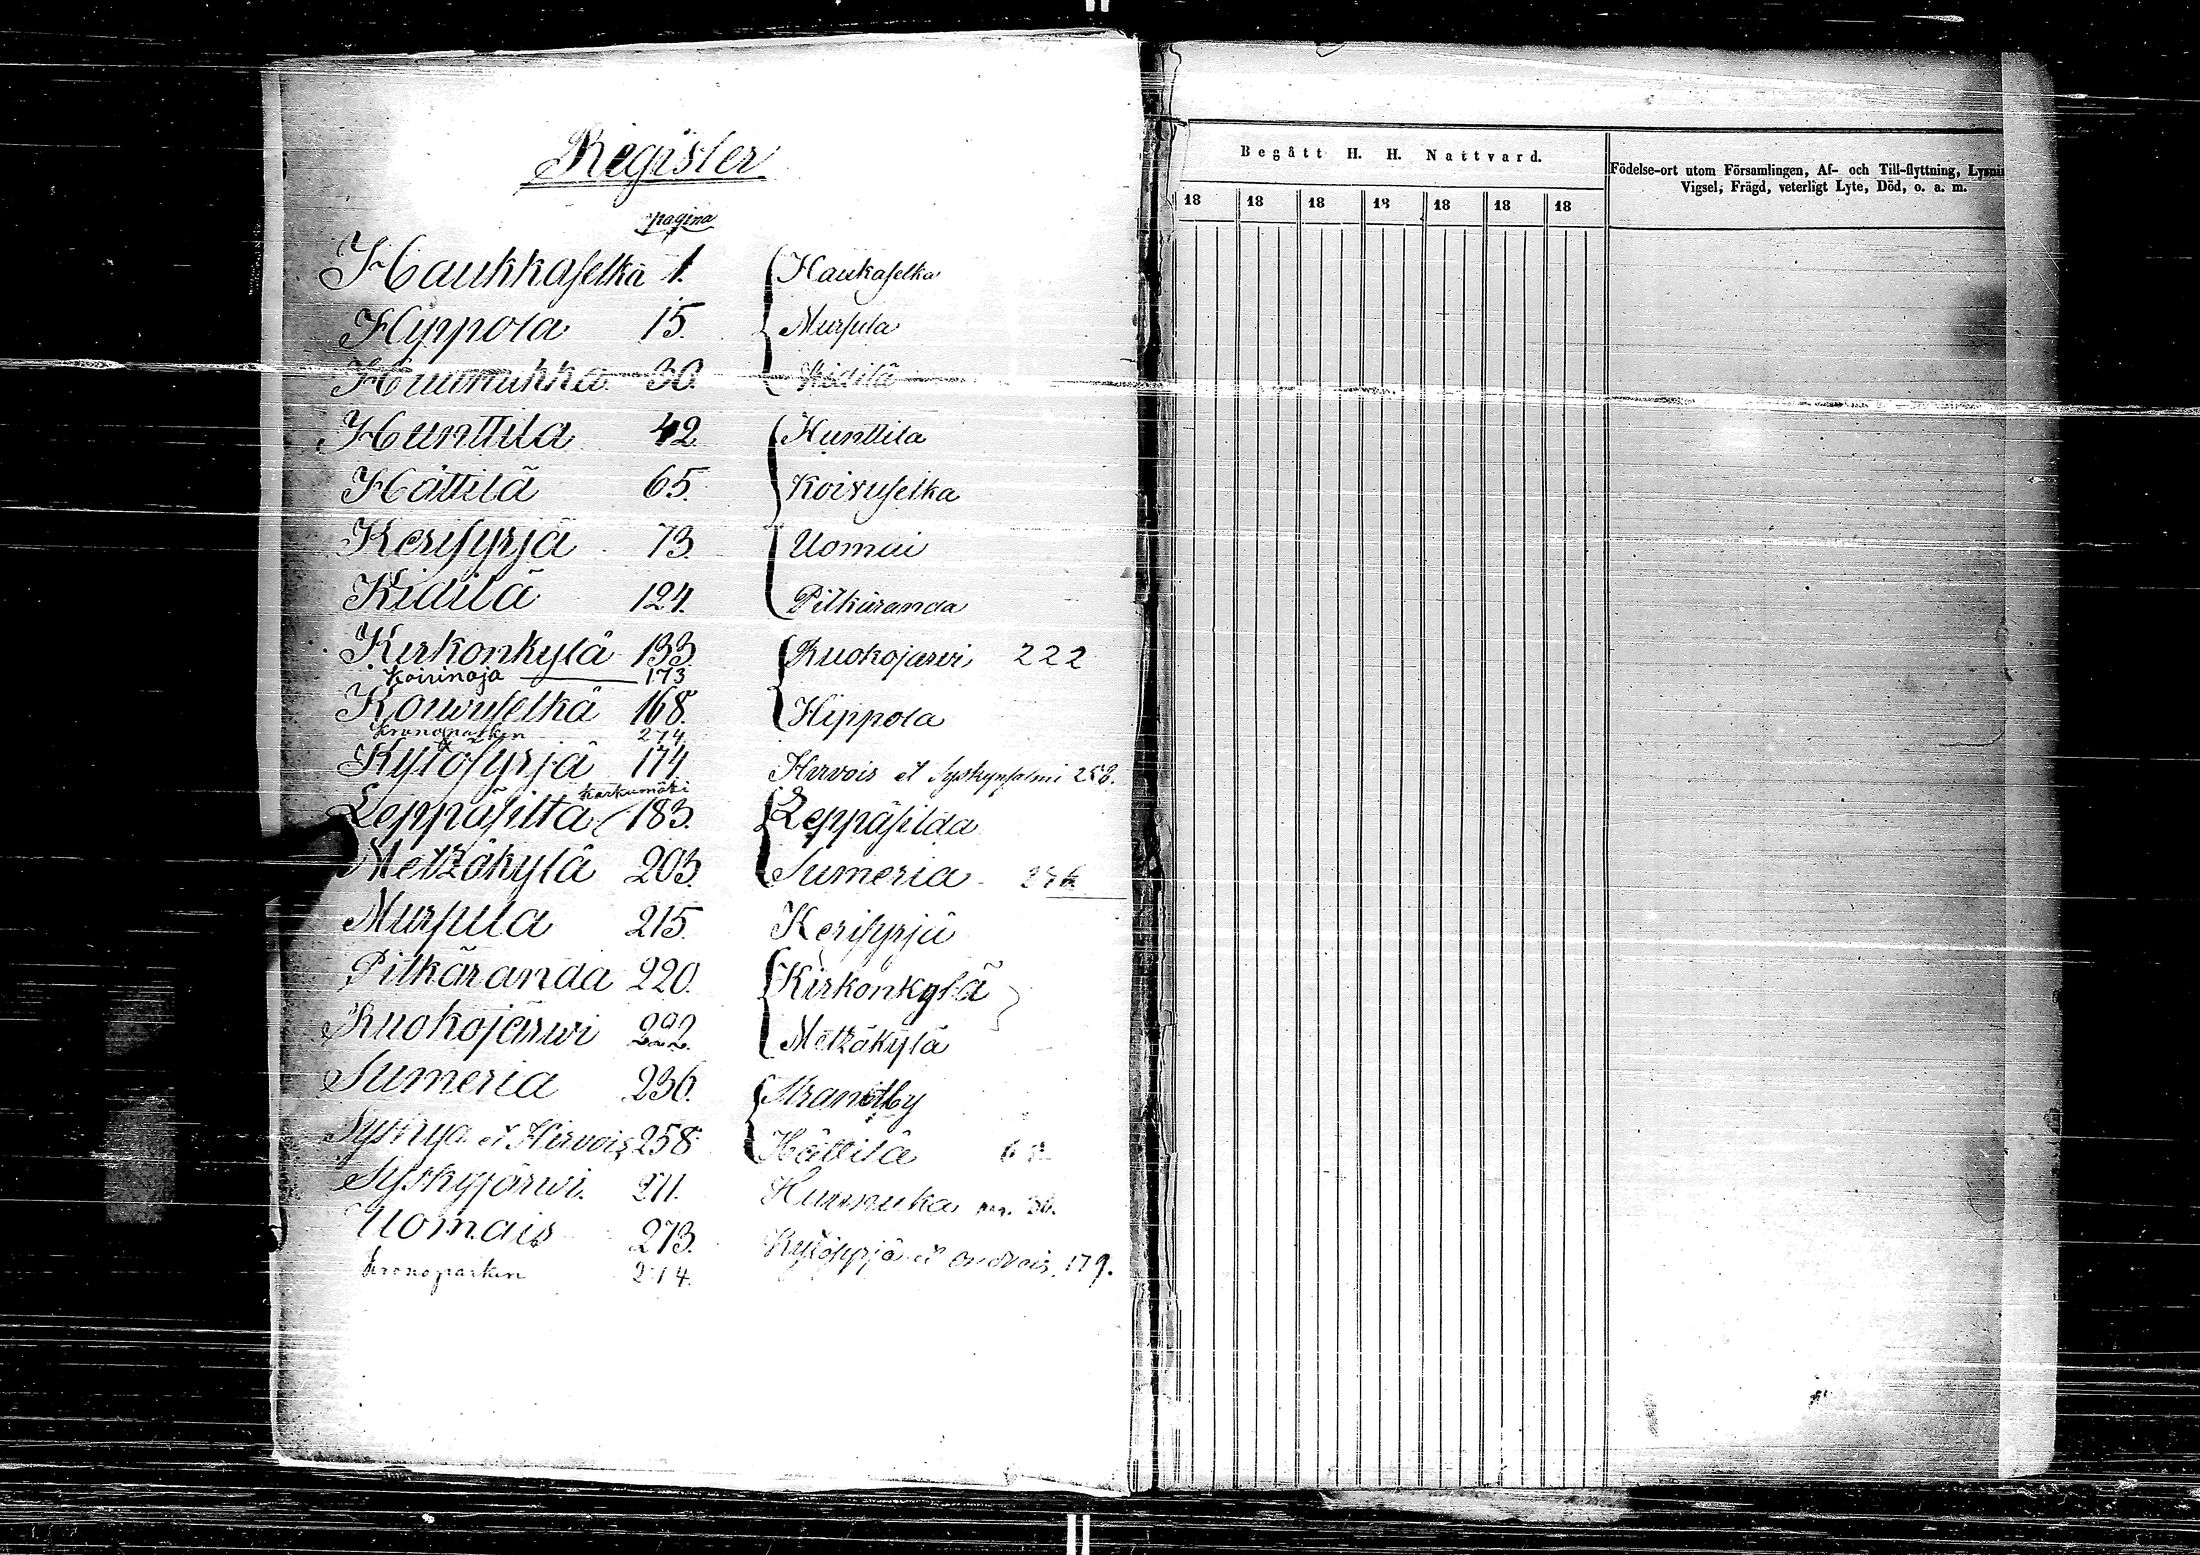 Register
pagina
Haukkaselkä 1.
Hippola 15.
Huunukka 30.
Hunttila 42
Hättilä 65.
Kerisyrjä 73.
Kidilä 124.
Kirkonkylä 133.
Koirinoja 173
Koivuselkä 168.
Kronoparken 274
Kylösyrjä 174
Karkumäki
Leppäsilta 183.
Metzäkylä 203.
Mursula 215.
Pitkäranda 220.
Ruokojärwi 222.
Sumeria 236.
Syskyä et Hirvois 258.
Syskyjärwi 271.
Uomais 273.
Kronoparken 274.
Haukaselka
Mursula
Kidilä
Hunttila
Koivuselka
Uomai
Pitkäranda
Ruokojarvi 222
Hippola
Hirvois et Syskynsalmi 258.
Leppäsilda
Sumeria
Kerisyrjä
Kirkonkylä
Metzäkylä
Strandby
Hättilä
Hunnuka pag. 30.
Kylösyrjä et Ondrois 179.
Begått H. H. Nattvard.
Födelse-ort utom Församlingen, Af- och Till-flyttning, Lysnin
Vigsel, Frägd, veterligt Lyte, Död, o. a. m.
18 18 18 18 18 18 18